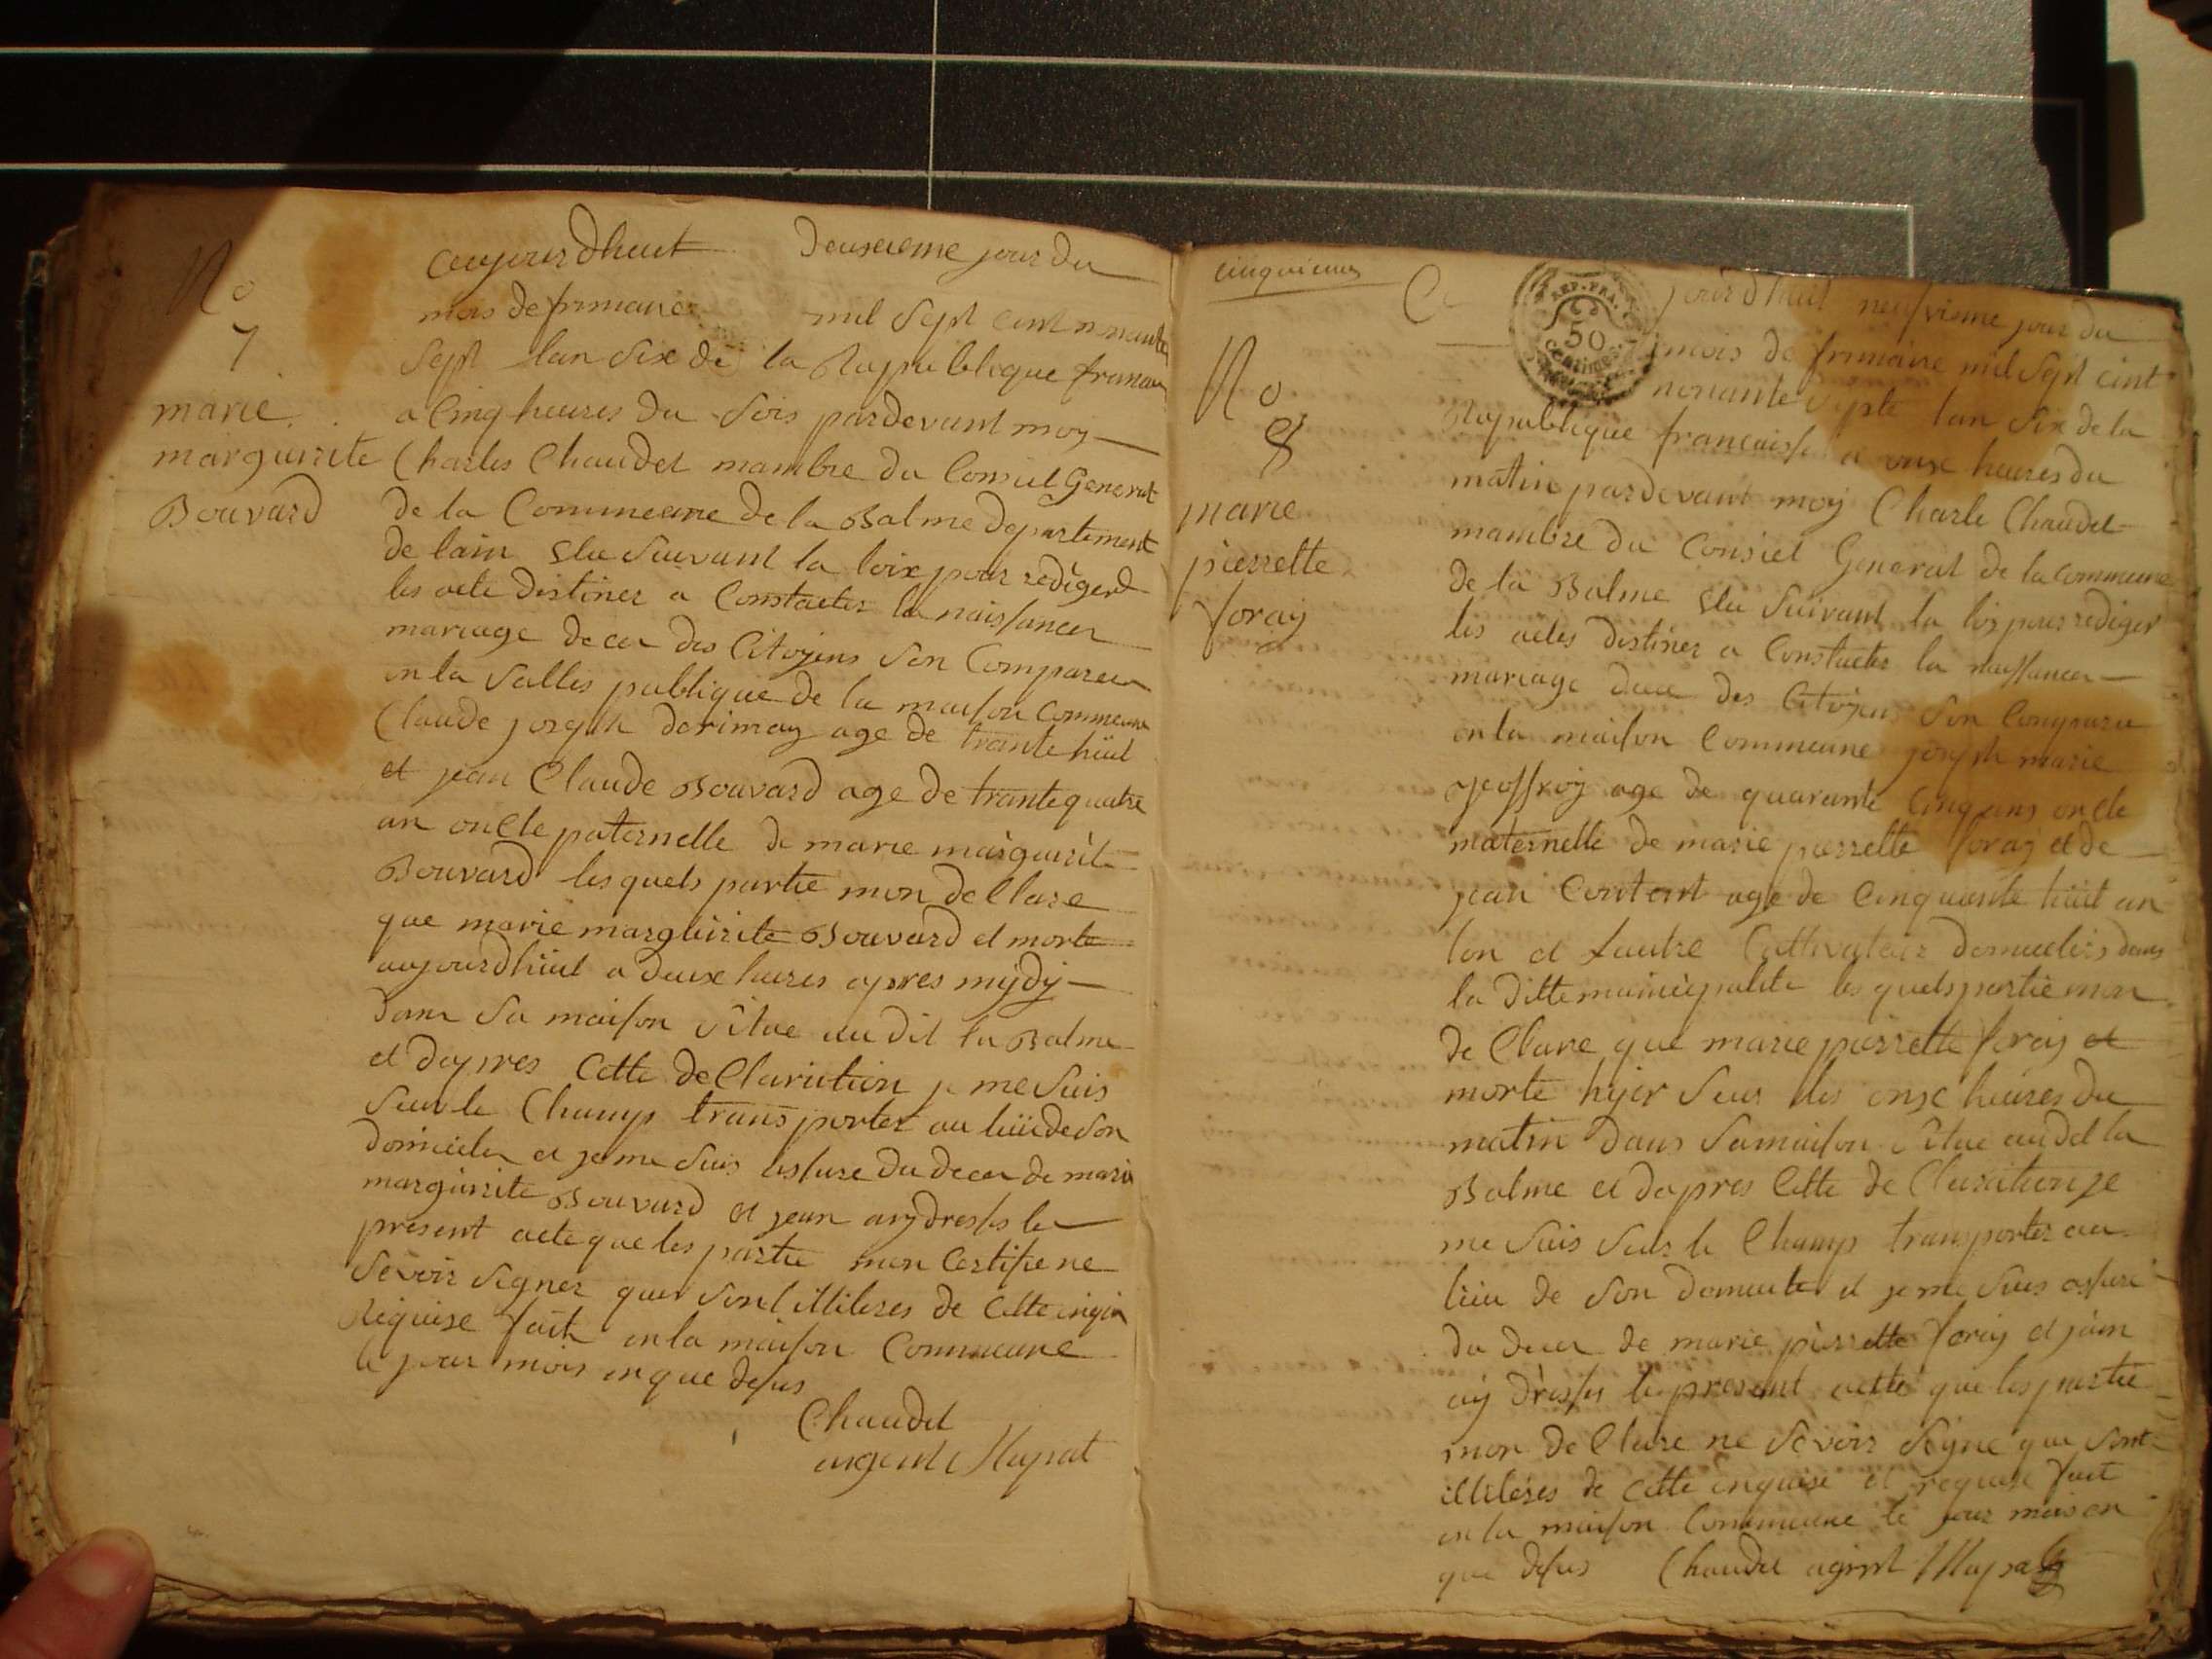 No
7
marie
marguirite
Bouvard
aujourdhuit Deuxieme jour du
mois de frimaire mil Sept cent nonante
Sept lan Six de la Republique francai
a Cinq heures du Soir pardevant moy
Charles Chaudet mambre du Conseil General
de la Commeune de la Balme departement
de lain Elu Suivant la loix pour redigerd
les acte distiner a Constater la naissance
mariage decer des Citoyens Son Comparu
en la Salles publique de la maison Commeune
Claude joseph age de trante huit
et jean Claude Bouvard age de trantequatre
an oncle paternelle de marie marguirite
Bouvard lesquels partie mon de Clare
que marie marguirite Bouvard et morte
aujourdhuit a deux heures apres mydy
dans Sa maison Situe au dit la Balme
et dapres Cette de Claration je me Suis
Seur le Champ transporter au lieu de Son
domicile et je me Suis assure du decer de marie
marguirite Bouvard et jean ay dresses le
present acte que les partie mon Certifie ne
Sevoir Signer que Sont illiteres de Cette
Requise fait en la maison Commeune
le jour mois en que desus
Chaudet
argent
cinquieme
REP. FRA.
50
Centimes
No
8
marie
pierrette
foray
jourdhuit neufvieme jour du
mois de frimaire mil Sept cent
nonante Septe lan Six de la
Republique francaisse a onze heures du
matin pardevant moy Charle Chaudet
mambre du Conseil General de la Commeune
de la Balme Elu Suivant la loy pour rediger
les actes distiner a Constater la naissance
mariage decer des Citoyens Son Comparu
en la maison Commeune joseph marie
jeoffroy age de quarante Cinq ans oncle
maternelle de marie pierrette foray et de
jean Contant age de Cinquante huit an
lon et lautre Cultivateur domicilier dans
la ditte municipalite les quels partie mon
de Clare que marie pierrette foray et
morte hyer Seur les onze heures du
matin dans Sa maison Situe audet la
Balme et dapres Cette de Claration je
me Suis Seur le Champ transporter au
lieu de Son domicile et je me Suis assure
du decer de marie pierrette foray et jain
ay dresses le present acte que les partie
mon de Clare ne Sevoir Signe que Sont
illiteres de Cette enquise et requise fait
en la maison Commeune le jour mois en
que desus Chaudet agent